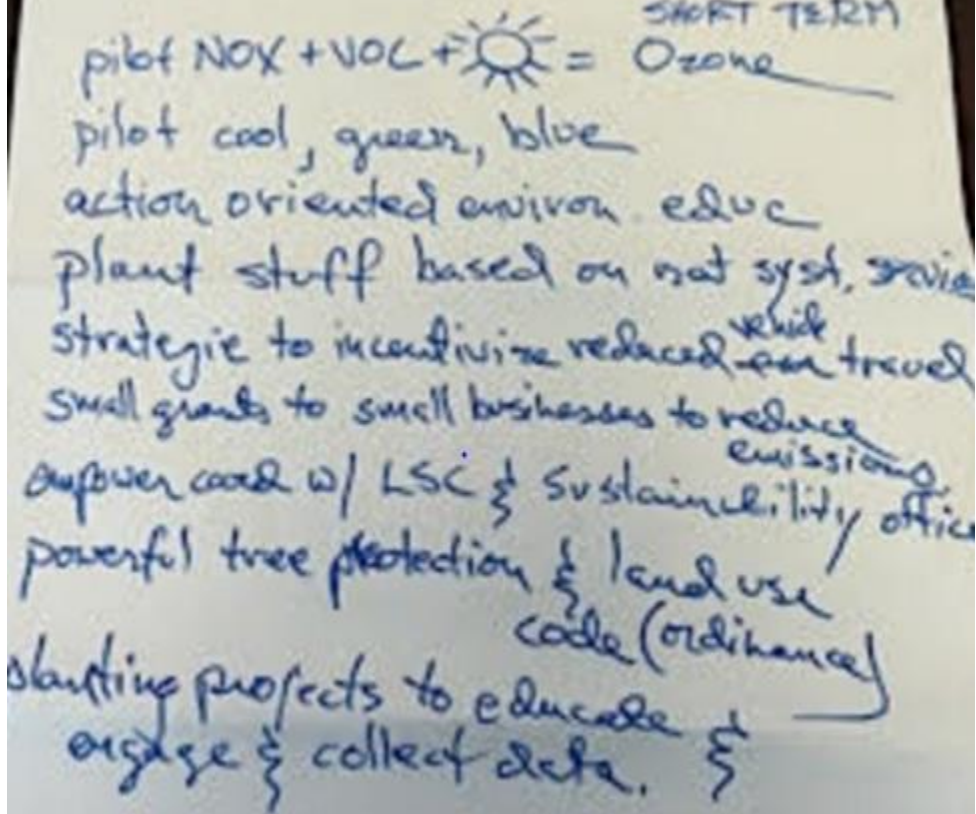 SHORT TERM
pilot NOX + VOC + = Ozone
pilot cool, green, blue
action oriented environ. educ
plant stuff based on nat syst. servic
strategie to incentivize reduced vehicle travel
small grants to small businesses to reduce
emissions
empower coord w/ LSC & Sustainability office
powerful tree protection & land use
code (ordinance)
planting projects to educate &
engage & collect data. &